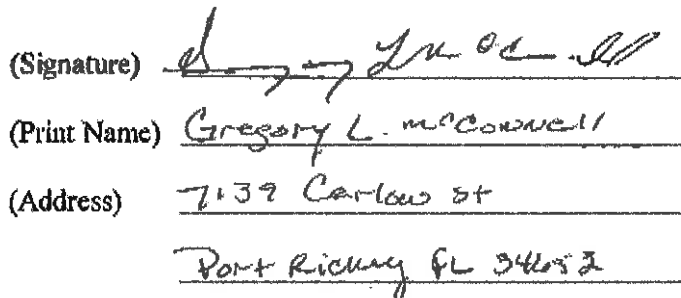 (Signature)
(Print Name) Gregory L. McConnell
(Address) 7139 Carlow St
Port Richey FL 34652